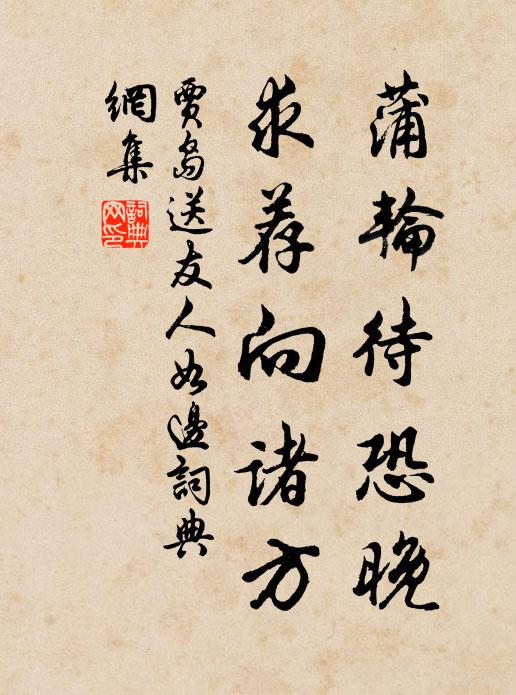 蒲輪待恐晚
求荐向諸方
賈島送友人如邊詞典
網集
詞典
网印